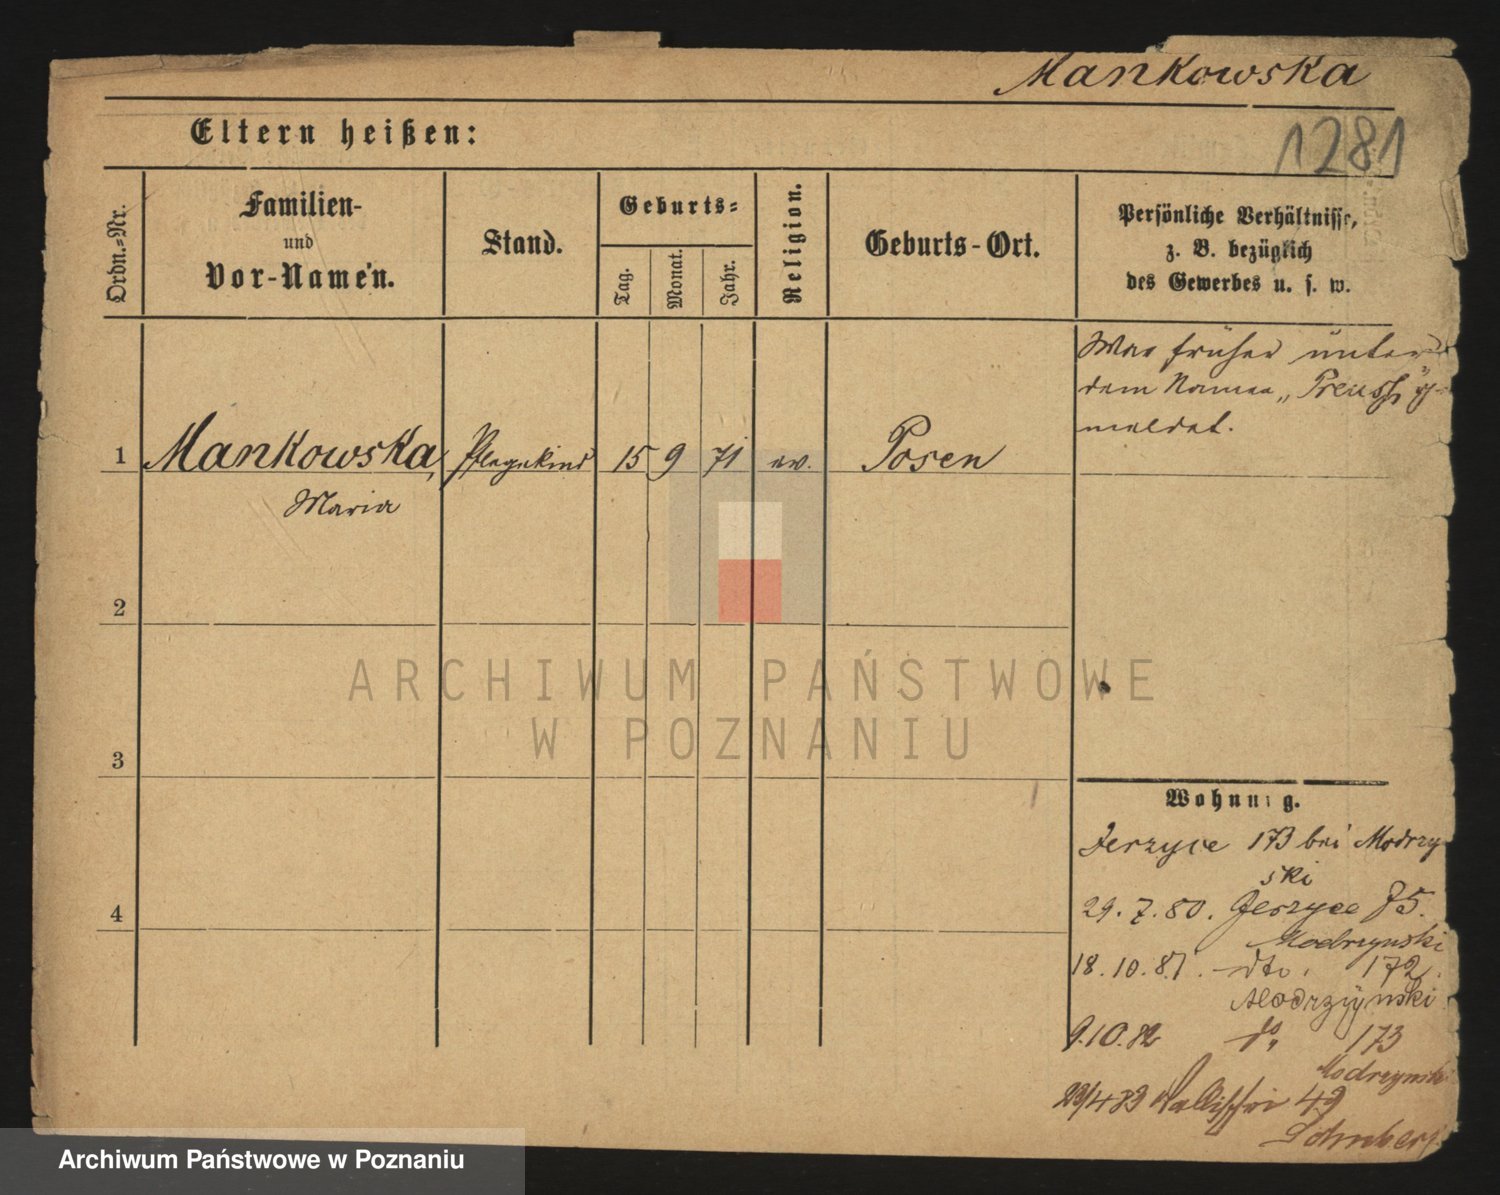 Mankowska
1281
Eltern heißen:
Ordn.-Nr.
Familien-
und
Vor-Namen.
Stand.
Geburts-
Tag.
Monat.
Jahr.
Religion.
Geburts-Ort.
Persönliche Verhältnisse,
z. B. bezüglich
des Gewerbes u. s. w.
War früher unter
dem Namen „Preuss" ge-
meldet.
1 Mankowska, Pflegekind 15 9 71 ev. Posen
Maria
2
3
4
Wohnung.
Jerzyce 173 bei Modrzyn
ski
29.7.80. Jerzyce 75.
Modrzynski
18.10.81. dto. 172.
Modrzynski
9.10.82 do 173
Modrzynski
23/4 83 Wallischei 49
ARCHIWUM PAŃSTWOWE
W POZNANIU
Archiwum Państwowe w Poznaniu